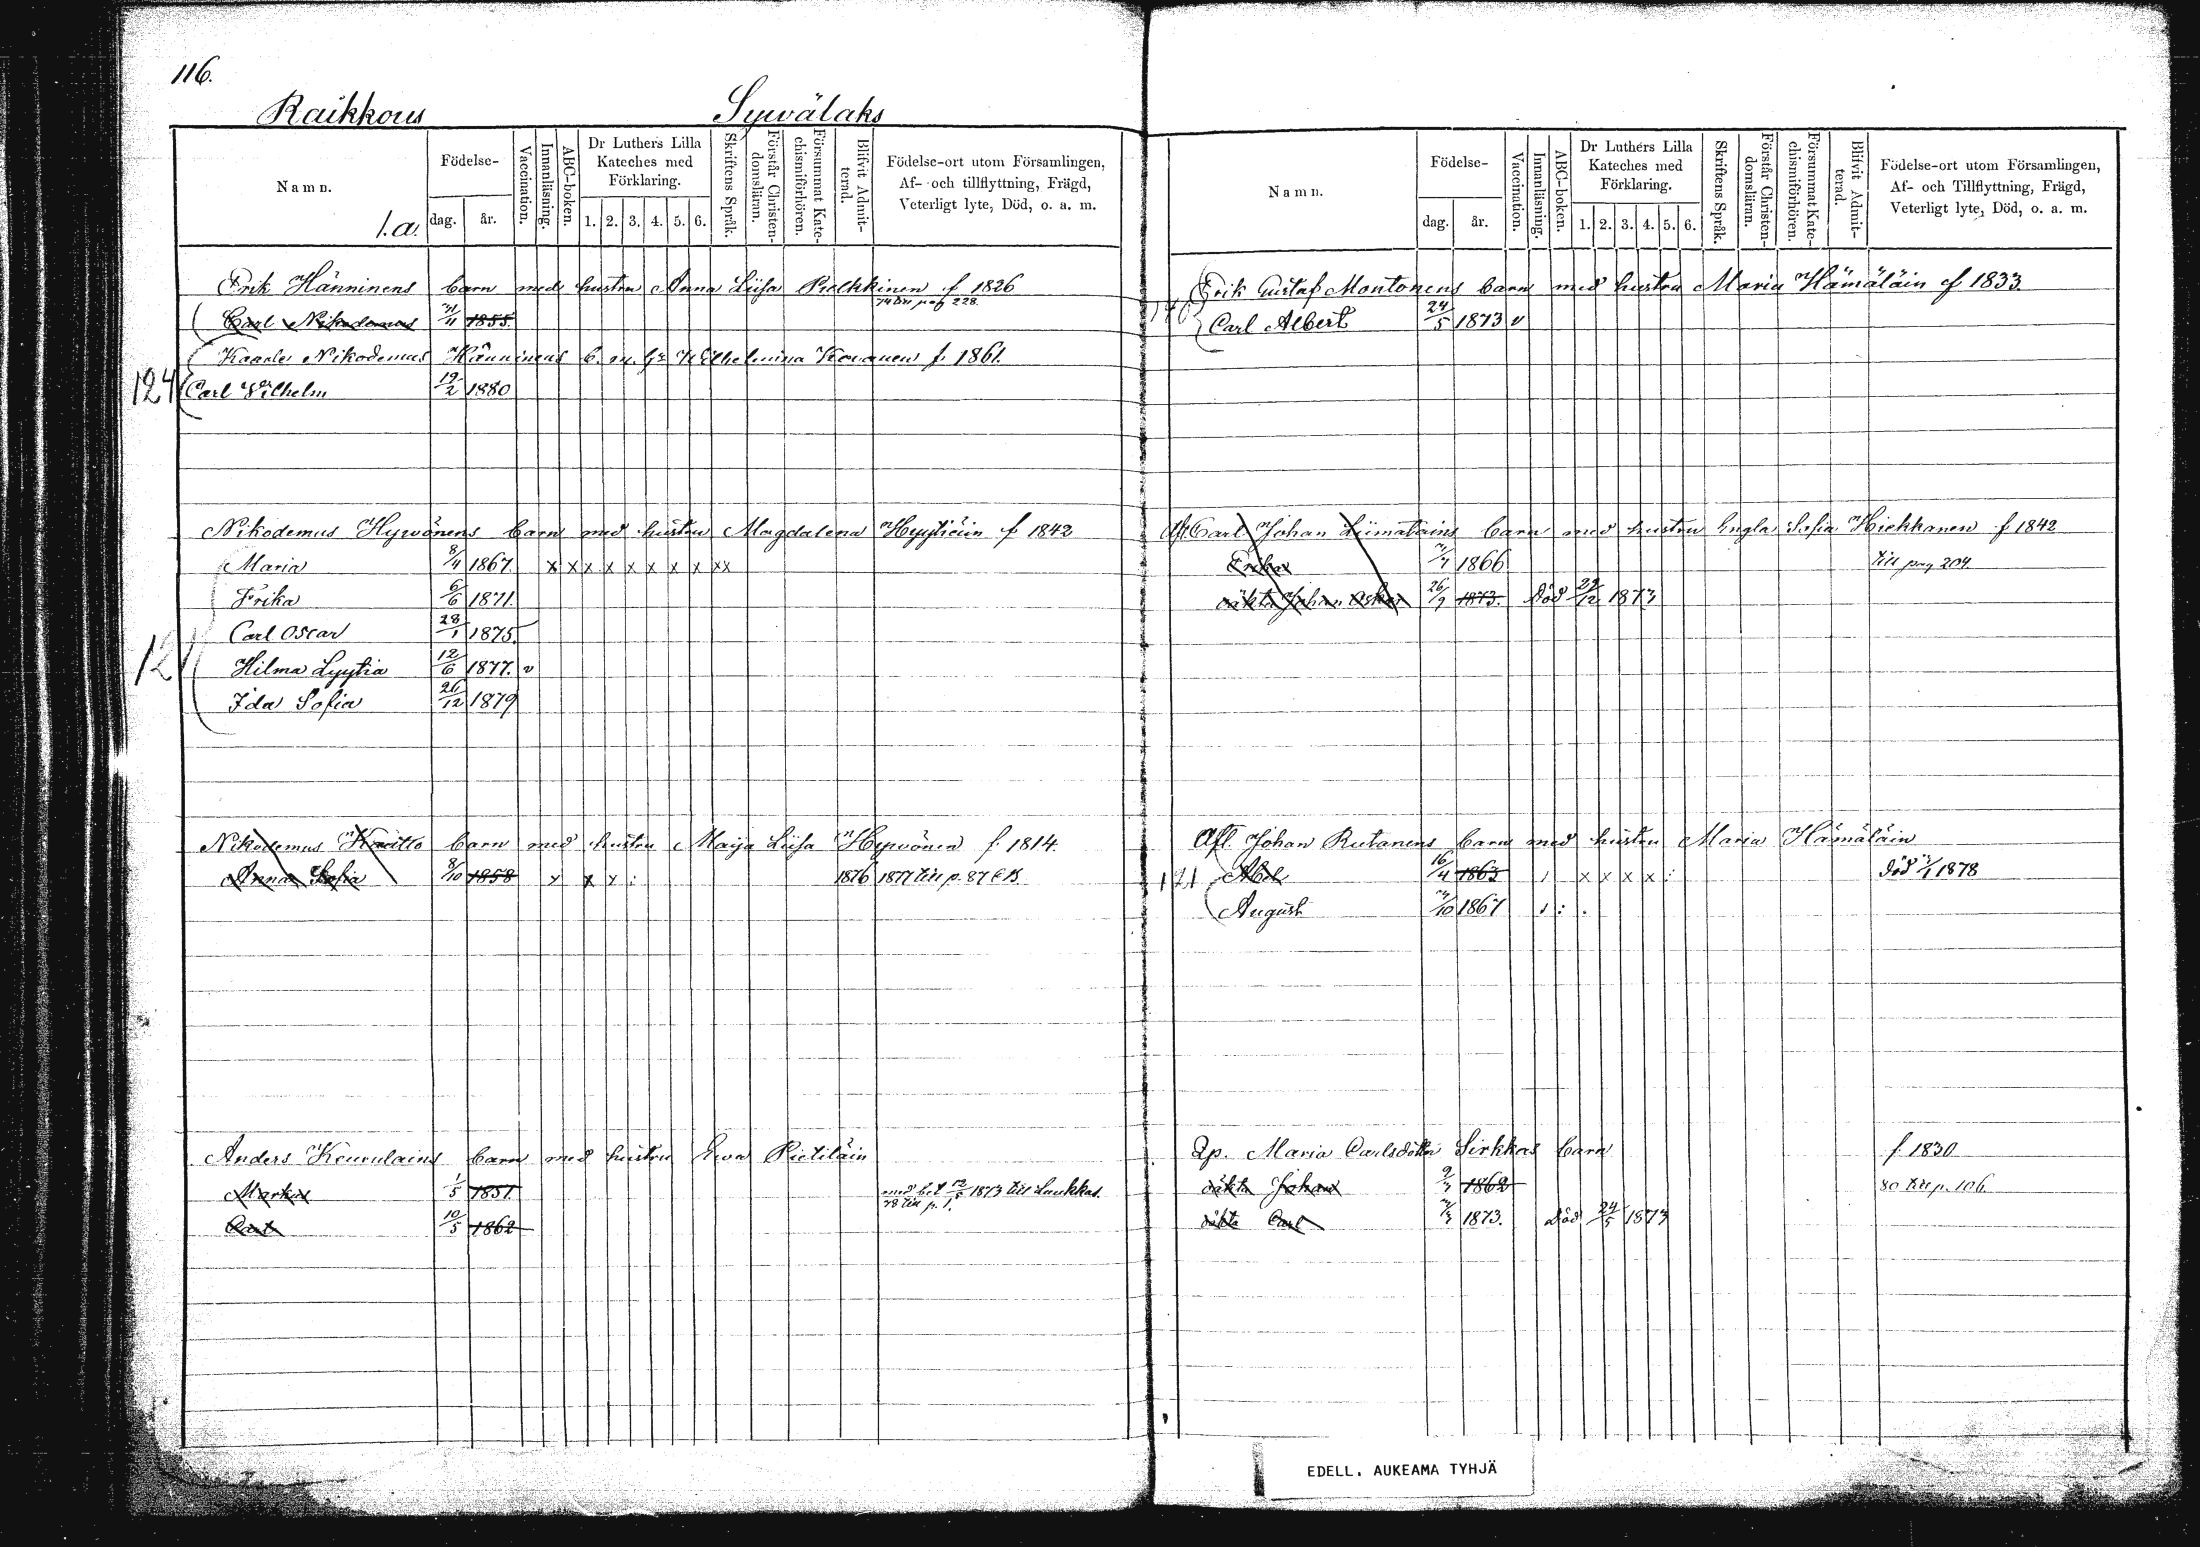 116.
Raikkous Sywälaks
Namn.
1.a.
Födelse-
dag. år.
Vaccination.
Innanläsning.
ABC-boken.
Dr Luthers Lilla Kateches med Förklaring.
1. 2. 3. 4. 5. 6.
Skriftens Språk.
Förstår Christen-domsläran.
Försummat Kate-chismiförhören.
Blifvit Admit-terad.
Födelse-ort utom Församlingen,
Af- och tillflyttning, Frägd,
Veterligt lyte, Död, o. a. m.
Erik Hänninens barn med hustru Anna Liisa f 1826
till pag 228.
Carl Nikodemus 1855.
Kaarle Nikodemus Hänninens b. m. h. Wilhelmina f. 1861.
124 Carl Wilhelm 19/2 1880
Nikodemus Hyvönens barn med hustru Magdalena Hyytiäin f 1842
Maria 8/4 1867. x x x x x x x x xx
Frika 6/6 1871.
Carl Oscar 28/1 1875.
121 Hilma Lyytia 12/6 1877. v
Ida Sofia 26/12 1879
Nikodemus barn med hustru Maija Liisa Hyvönen f. 1814.
Anna Sofia 8/10 1858 x x x : 1876 1877 till p. 87 
Anders Keurulains barn med hustru Ewa Pietiläin
Markus 1/5 1851. med bet 1873 till Laukkas.
78 till p. 1.
10/5 1862
Namn.
Födelse-
dag. år.
Vaccination.
Innanläsning.
ABC-boken.
Dr Luthers Lilla Kateches med Förklaring.
1. 2. 3. 4. 5. 6.
Skriftens Språk.
Förstår Christen-domsläran.
Försummat Kate-chismiförhören.
Blifvit Admit-terad.
Födelse-ort utom Församlingen,
Af- och Tillflyttning, Frägd,
Veterligt lyte, Död, o. a. m.
Erik Gustaf Montonens barn med hustru Maria Hämäläin f 1833.
Carl Albert 24/5 1873 v
Afl. Carl Johan Liimatains barn med hustru Engla Sofia Hiekkanen f 1842
Erika 1866 till pag 204.
oäkta Johan Oskar 26/9 1873. Död 29/12 1873
Afl. Johan Rutanens barn med hustru Maria Hämäläin
121 Abel 16/4 1863 x x x x : Död 1878
August 1867
Qp. Maria Carlsdotter Sirkkas barn f. 1830
oäkta Johan 1862 80 till p. 106.
oäkta Carl 1873. Död 24/5 1873
EDELL. AUKEAMA TYHJÄ